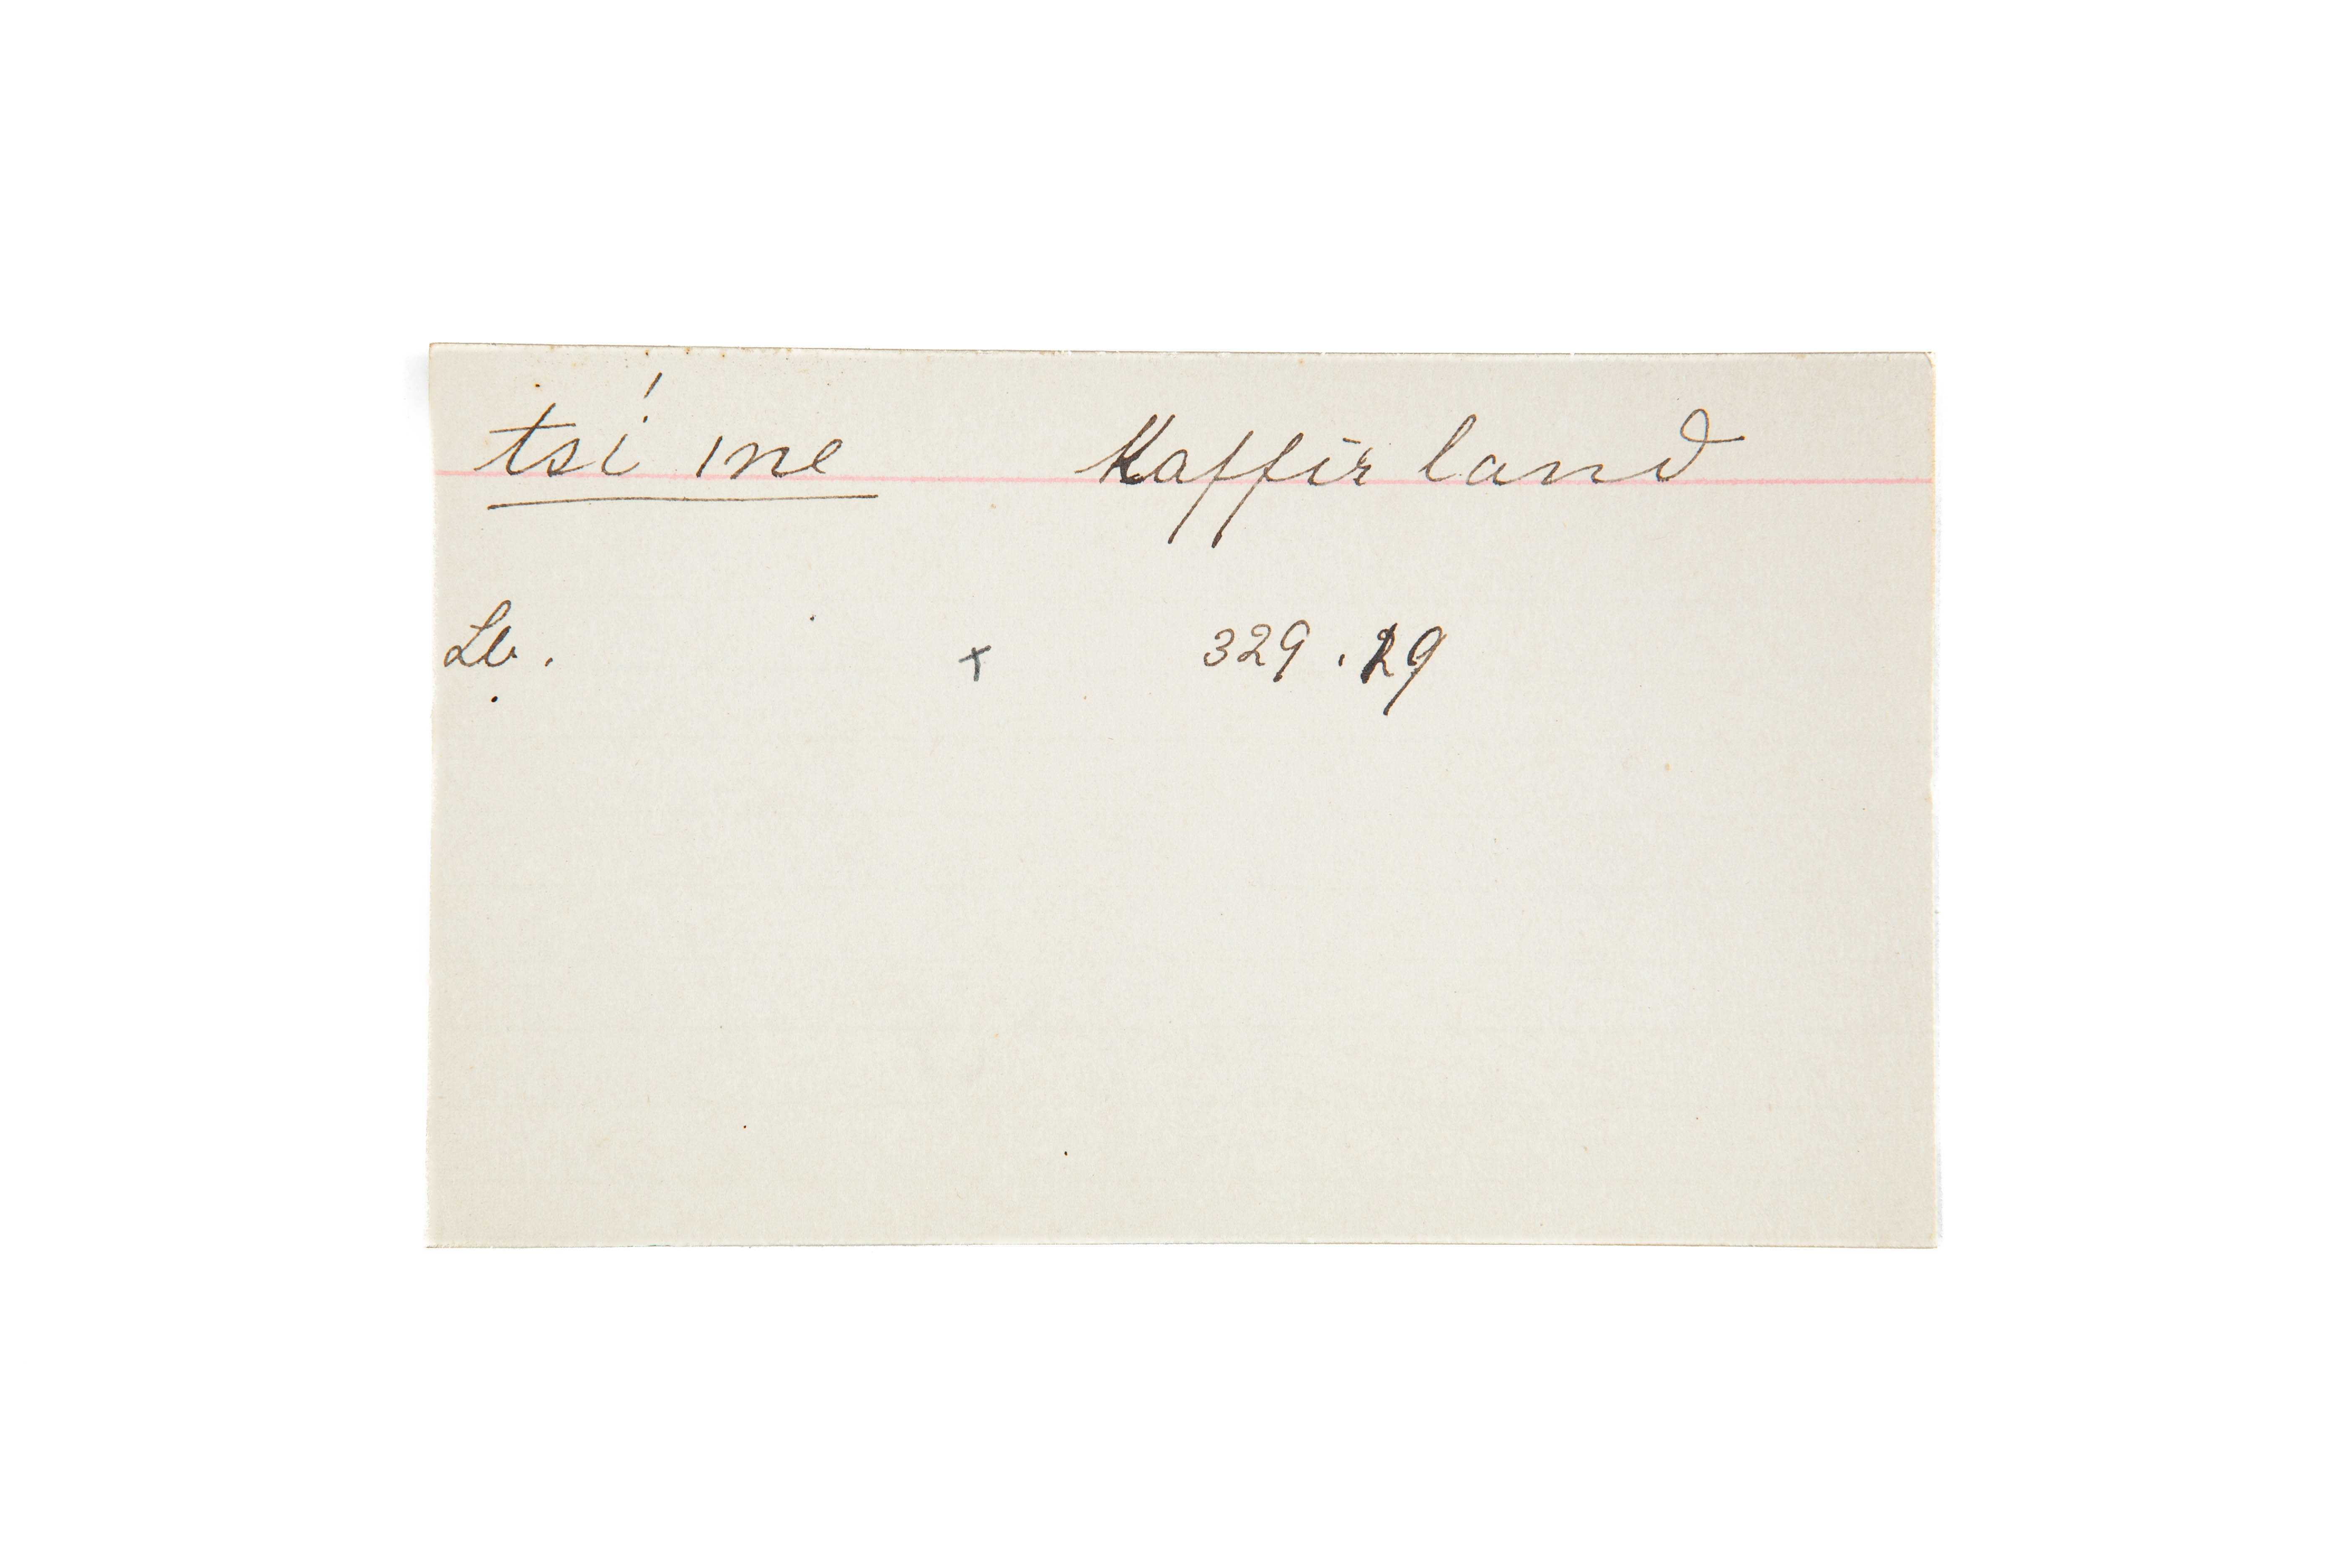 tsí ıne Kaffir land
Lb. + 329.29